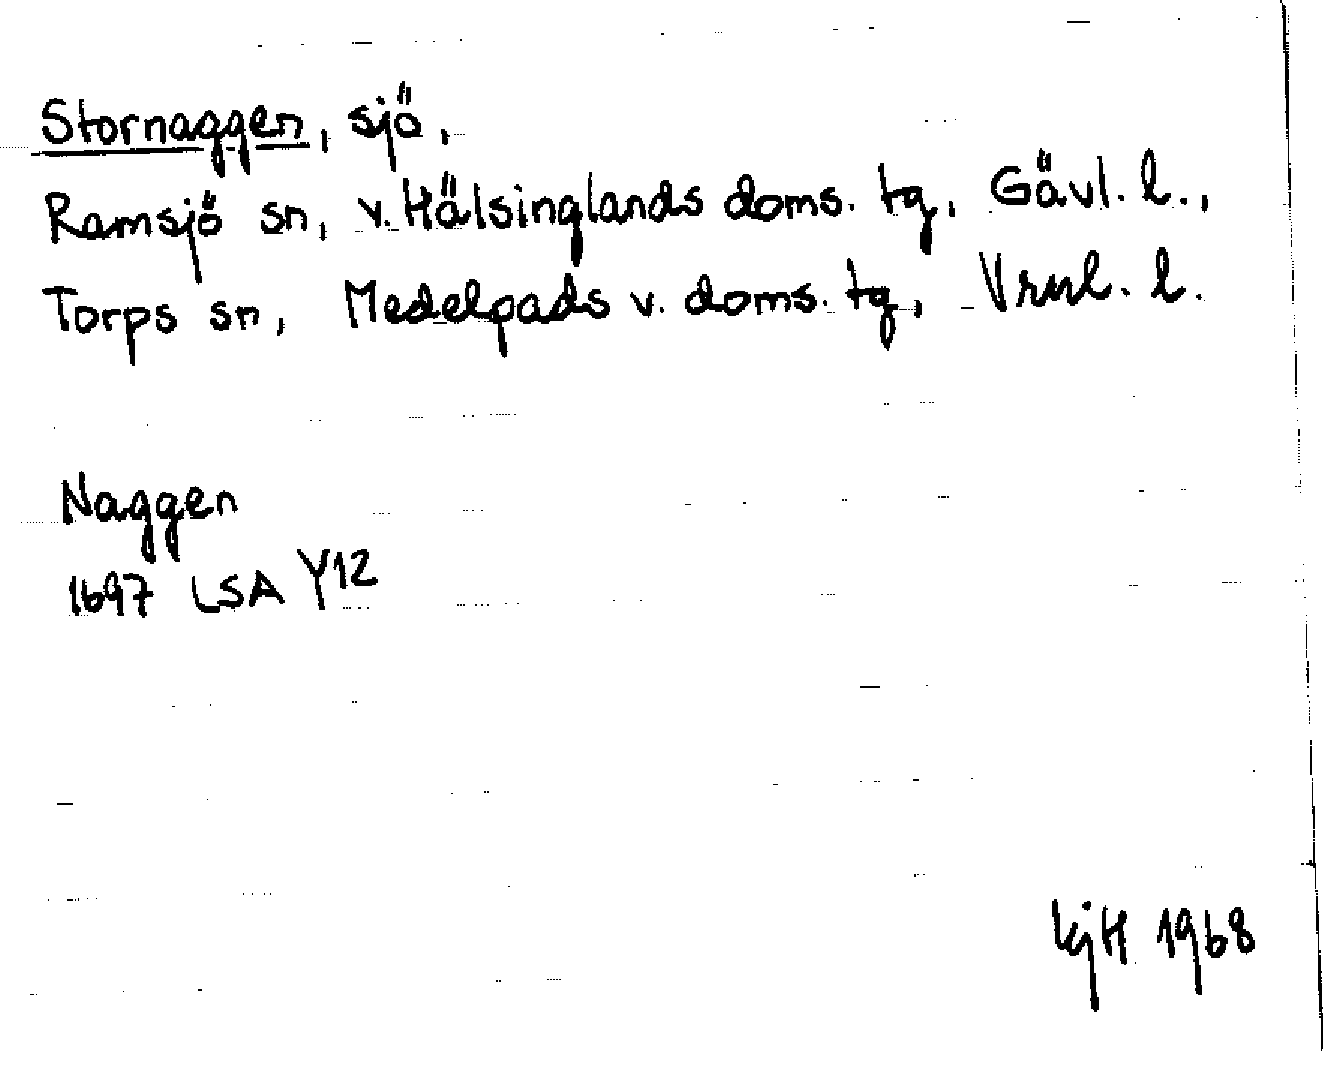 Stornaggen, sjö,
Ramsjö sn, v. Hälsinglands doms. tg, Gävl. l.,
Torps sn, Medelpads v. doms. tg, Vrnl. l.
Naggen
1697 LSA Y12
KjH 1968